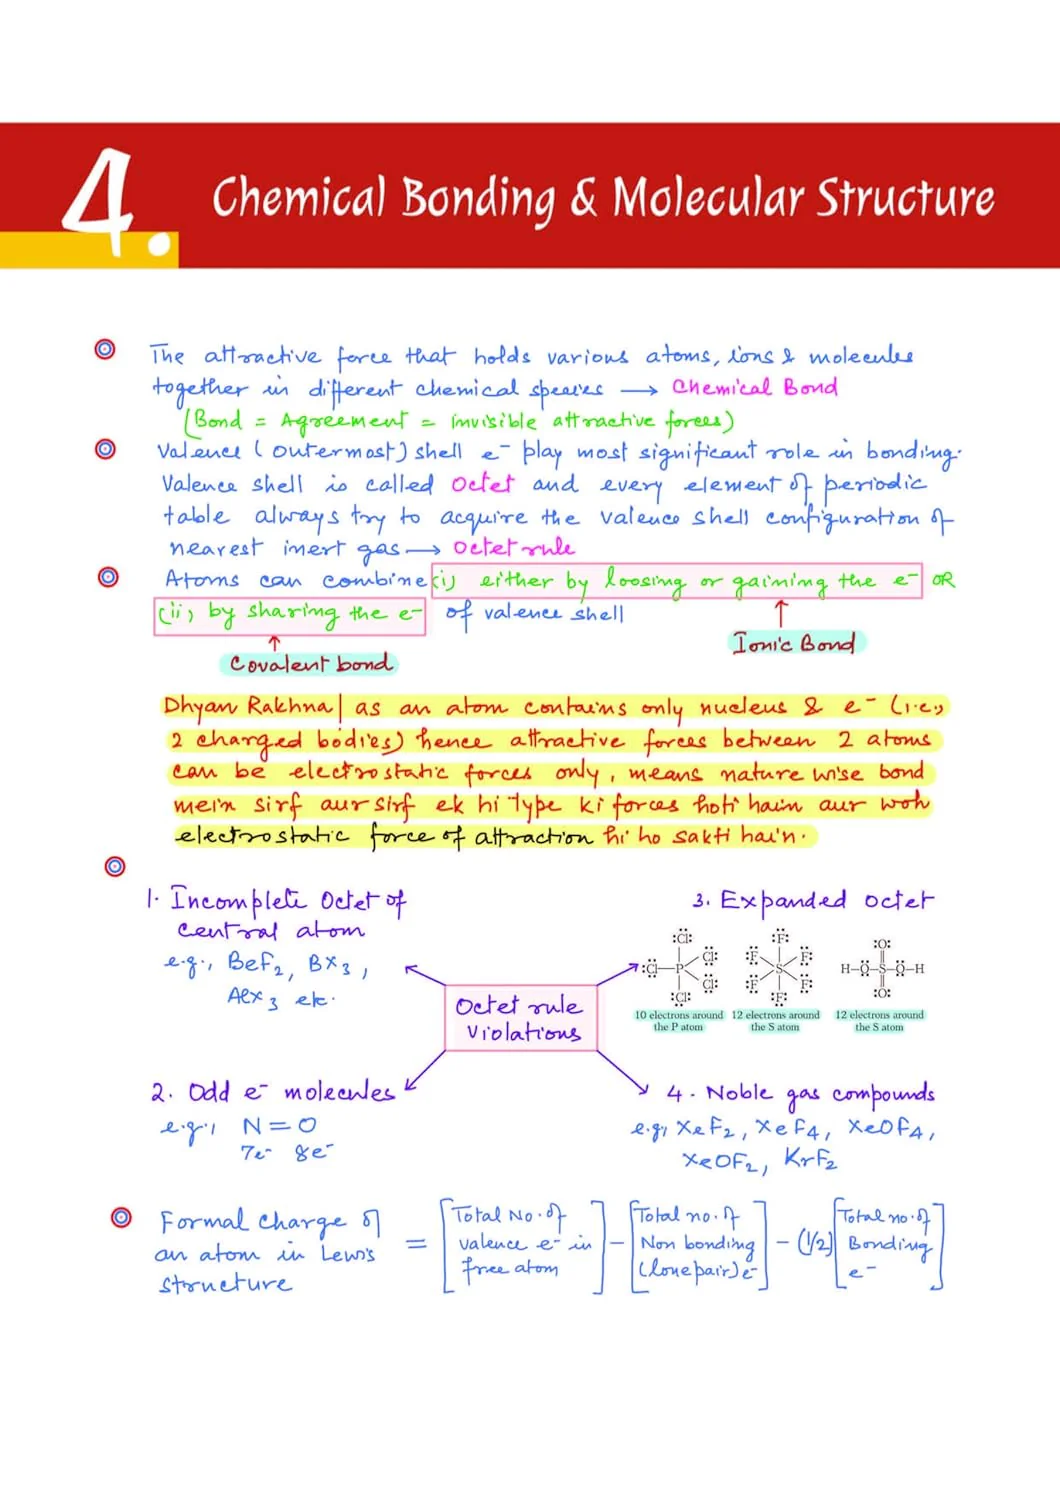 4. Chemical Bonding & Molecular Structure
The attractive force that holds various atoms, ions & molecules
together in different chemical species → Chemical Bond
(Bond = Agreement = invisible attractive forces)
Valence (outermost) shell e⁻ play most significant role in bonding.
Valence shell is called Octet and every element of periodic
table always try to acquire the valence shell configuration of
nearest inert gas → Octet rule
Atoms can combine (i) either by loosing or gaining the e⁻ OR
(ii) by sharing the e⁻ of valence shell
Ionic Bond
Covalent bond
Dhyan Rakhna | as an atom contains only nucleus & e⁻ (i.e.,
2 charged bodies) hence attractive forces between 2 atoms
can be electrostatic forces only, means nature wise bond
mein sirf aur sirf ek hi type ki forces hoti hain aur woh
electrostatic force of attraction hi ho sakti hain.
1. Incomplete Octet of
central atom
e.g., BeF₂, BX₃,
AlX₃ etc.
3. Expanded octet
:Cl: :Cl: :Cl: P :Cl: :Cl:
:F: :F: :F: S :F: :F: :F:
:O: H–O–S–O–H :O:
10 electrons around
the P atom
12 electrons around
the S atom
12 electrons around
the S atom
Octet rule
Violations
2. Odd e⁻ molecules
e.g., N=O
7e⁻ 8e⁻
4. Noble gas compounds
e.g, XeF₂, XeF₄, XeOF₄,
XeOF₂, KrF₂
Formal charge of
an atom in Lewis
structure
= [Total No. of
valence e⁻ in
free atom]
− [Total no. of
Non bonding
(lone pair) e⁻]
− (1/2) [Total no. of
Bonding
e⁻]